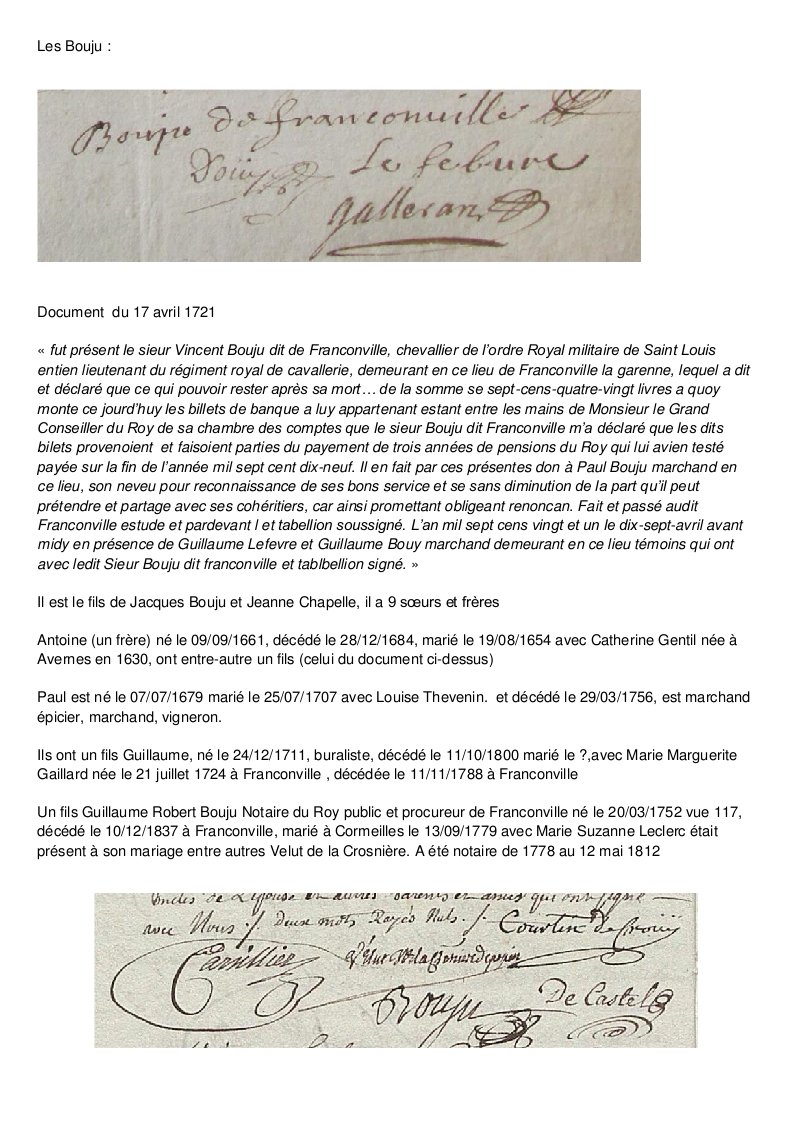 Les Bouju :
Bouju de franconuille
Doüy Le febure
galleran
Document  du 17 avril 1721
« fut présent le sieur Vincent Bouju dit de Franconville, chevallier de l’ordre Royal militaire de Saint Louis
entien lieutenant du régiment royal de cavallerie, demeurant en ce lieu de Franconville la garenne, lequel a dit
et déclaré que ce qui pouvoir rester après sa mort… de la somme se sept-cens-quatre-vingt livres a quoy
monte ce jourd’huy les billets de banque a luy appartenant estant entre les mains de Monsieur le Grand
Conseiller du Roy de sa chambre des comptes que le sieur Bouju dit Franconville m’a déclaré que les dits
bilets provenoient  et faisoient parties du payement de trois années de pensions du Roy qui lui avien testé
payée sur la fin de l’année mil sept cent dix-neuf. Il en fait par ces présentes don à Paul Bouju marchand en
ce lieu, son neveu pour reconnaissance de ses bons service et se sans diminution de la part qu’il peut
prétendre et partage avec ses cohéritiers, car ainsi promettant obligeant renoncan. Fait et passé audit
Franconville estude et pardevant l et tabellion soussigné. L’an mil sept cens vingt et un le dix-sept-avril avant
midy en présence de Guillaume Lefevre et Guillaume Bouy marchand demeurant en ce lieu témoins qui ont
avec ledit Sieur Bouju dit franconville et tablbellion signé. »
Il est le fils de Jacques Bouju et Jeanne Chapelle, il a 9 sœurs et frères
Antoine (un frère) né le 09/09/1661, décédé le 28/12/1684, marié le 19/08/1654 avec Catherine Gentil née à
Avernes en 1630, ont entre-autre un fils (celui du document ci-dessus)
Paul est né le 07/07/1679 marié le 25/07/1707 avec Louise Thevenin.  et décédé le 29/03/1756, est marchand
épicier, marchand, vigneron.
Ils ont un fils Guillaume, né le 24/12/1711, buraliste, décédé le 11/10/1800 marié le ?,avec Marie Marguerite
Gaillard née le 21 juillet 1724 à Franconville , décédée le 11/11/1788 à Franconville
Un fils Guillaume Robert Bouju Notaire du Roy public et procureur de Franconville né le 20/03/1752 vue 117,
décédé le 10/12/1837 à Franconville, marié à Cormeilles le 13/09/1779 avec Marie Suzanne Leclerc était
présent à son mariage entre autres Velut de la Crosnière. A été notaire de 1778 au 12 mai 1812
oncles de L'épouse et autres parents et amis qui ont signé
avec Nous ./. deux mots Rayés Nuls ./. Courtin de
Carillier Velut de la Cronière de popin
Bouju De Castel